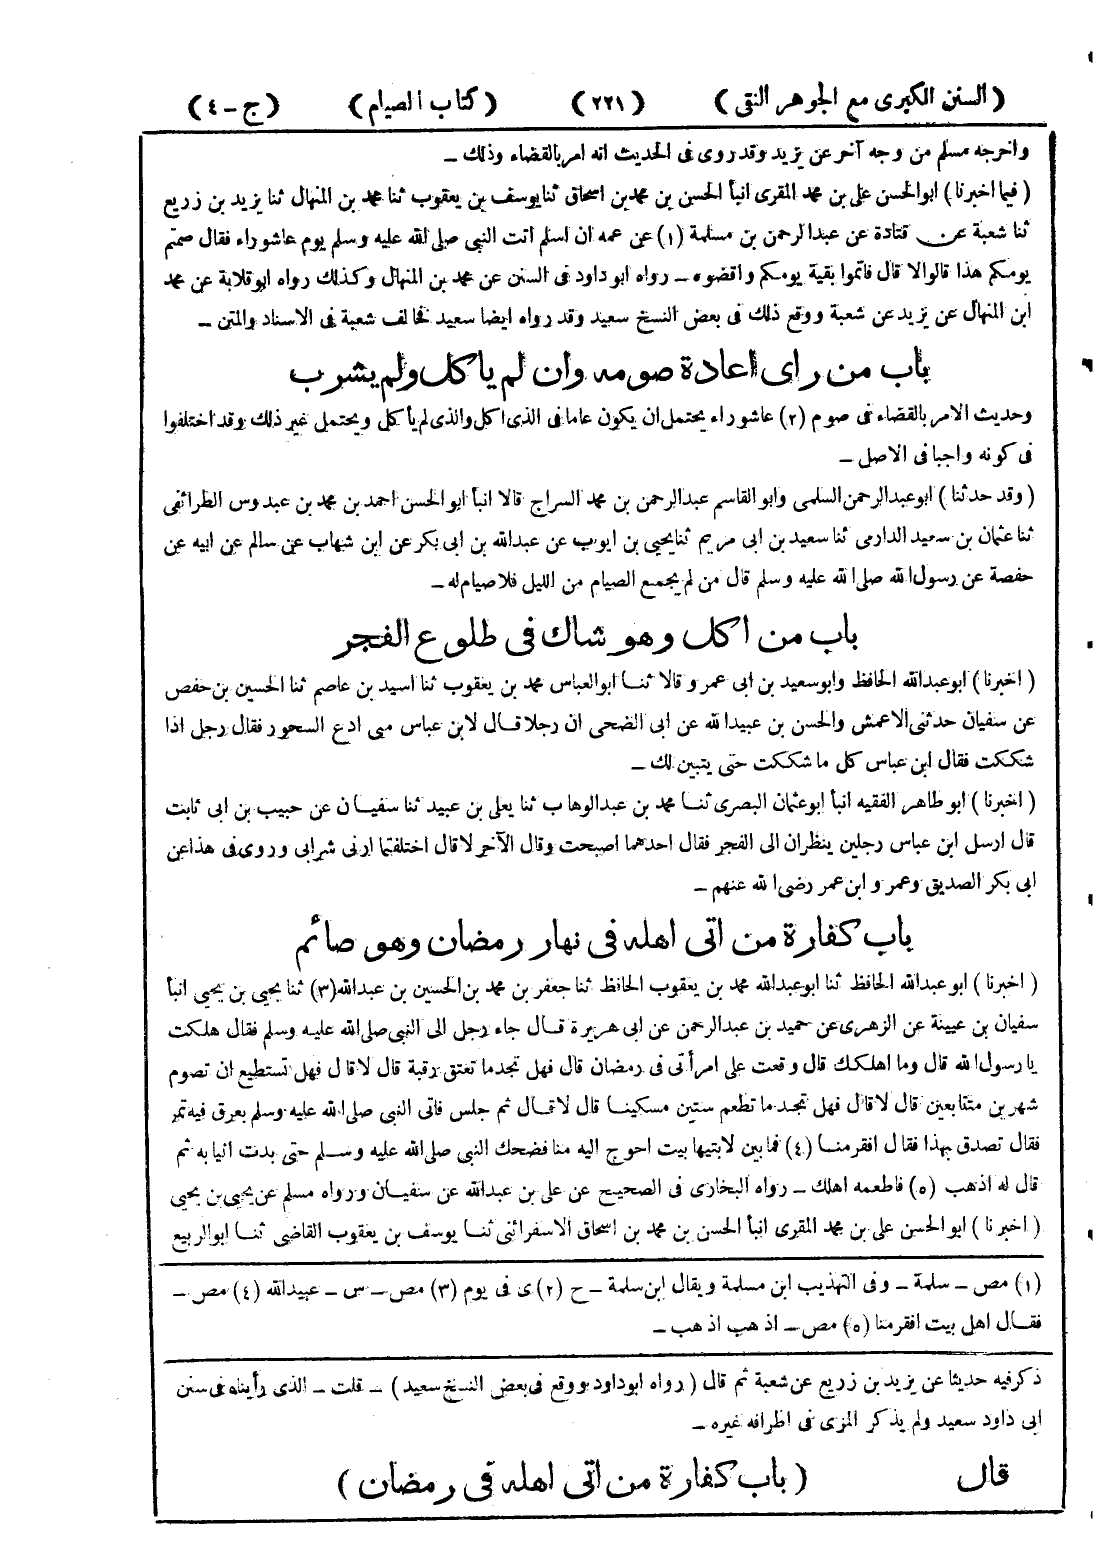 ( السنن الكبرى مع الجوهر النقى )   ( ٢٢١ )   ( كتاب الصيام )   ( ج - ٤ )
واخرجه مسلم من وجه آخر عن يزيد وقد روى فى الحديث انه امر بالقضاء وذلك ـ
( فيما اخبرنا ) ابو الحسن على بن محمد المقرى انبأ الحسن بن محمد بن اسحاق ثنا يوسف بن يعقوب ثنا محمد بن المنهال ثنا يزيد بن زريع
ثنا شعبة عن قتادة عن عبد الرحمن بن مسلمة (١) عن عمه ان اسلم اتت النبى صلى الله عليه وسلم يوم عاشوراء فقال صمتم
يومكم هذا قالوا لا قال فاتموا بقية يومكم واقضوه ـ رواه ابو داود فى السنن عن محمد بن المنهال وكذلك رواه ابو قلابة عن محمد
ابن المنهال عن يزيد عن شعبة ووقع ذلك فى بعض النسخ سعيد وقد رواه ايضا سعيد فخالف شعبة فى الاسناد والمتن ـ
باب من رأى اعادة صومه وان لم يأكل ولم يشرب
وحديث الامر بالقضاء فى صوم (٢) عاشوراء يحتمل ان يكون عاما فى الذى اكل والذى لم يأكل ويحتمل غير ذلك وقد اختلفوا
فى كونه واجبا فى الاصل ـ
( وقد حدثنا ) ابو عبد الرحمن السلمى وابو القاسم عبد الرحمن بن محمد السراج قالا انبأ ابو الحسن احمد بن محمد بن عبدوس الطرائفى
ثنا عثمان بن سعيد الدارمى ثنا سعيد بن ابى مريم ثنا يحيى بن ايوب عن عبد الله بن ابى بكر عن ابن شهاب عن سالم عن ابيه عن
حفصة عن رسول الله صلى الله عليه وسلم قال من لم يجمع الصيام من الليل فلا صيام له ـ
باب من اكل وهو شاك فى طلوع الفجر
( اخبرنا ) ابو عبد الله الحافظ وابو سعيد بن ابى عمرو قالا ثنا ابو العباس محمد بن يعقوب ثنا اسيد بن عاصم ثنا الحسين بن حفص
عن سفيان حدثنى الاعمش والحسن بن عبيد الله عن ابى الضحى ان رجلا قال لابن عباس متى ادع السحور فقال رجل اذا
شككت فقال ابن عباس كل ما شككت حتى يتبين لك ـ
( اخبرنا ) ابو طاهر الفقيه انبأ ابو عثمان البصرى ثنا محمد بن عبد الوهاب ثنا يعلى بن عبيد ثنا سفيان عن حبيب بن ابى ثابت
قال ارسل ابن عباس رجلين ينظران الى الفجر فقال احدهما اصبحت وقال الآخر لا قال اختلفتما ارنى شرابى وروى فى هذا عن
ابى بكر الصديق وعمر وابن عمر رضى الله عنهم ـ
باب كفارة من اتى اهله فى نهار رمضان وهو صائم
( اخبرنا ) ابو عبد الله الحافظ ثنا ابو عبد الله محمد بن يعقوب الحافظ ثنا جعفر بن محمد بن الحسين بن عبد الله (٣) ثنا يحيى بن يحيى انبأ
سفيان بن عيينة عن الزهرى عن حميد بن عبد الرحمن عن ابى هريرة قال جاء رجل الى النبى صلى الله عليه وسلم فقال هلكت
يا رسول الله قال وما اهلكك قال وقعت على امرأتى فى رمضان قال فهل تجد ما تعتق رقبة قال لا قال فهل تستطيع ان تصوم
شهرين متتابعين قال لا قال فهل تجد ما تطعم ستين مسكينا قال لا قال ثم جلس فاتى النبى صلى الله عليه وسلم بعرق فيه تمر
فقال تصدق بهذا فقال افقر منا (٤) فما بين لابتيها بيت احوج اليه منا فضحك النبى صلى الله عليه وسلم حتى بدت انيابه ثم
قال له اذهب (٥) فاطعمه اهلك ـ رواه البخارى فى الصحيح عن على بن عبد الله عن سفيان ورواه مسلم عن يحيى بن يحيى
( اخبرنا ) ابو الحسن على بن محمد المقرى انبأ الحسن بن محمد بن اسحاق الاسفرائنى ثنا يوسف بن يعقوب القاضى ثنا ابو الربيع
(١) مص ـ سلمة ـ وفى التهذيب ابن مسلمة ويقال ابن سلمة ـ ح (٢) ى فى يوم (٣) مص ـ س ـ عبيد الله (٤) مص ـ
فقال اهل بيت افقر منا (٥) مص ـ اذهب اذهب ـ
ذكر فيه حديثا عن يزيد بن زريع عن شعبة ثم قال ( رواه ابو داود ووقع فى بعض النسخ سعيد ) ـ قلت ـ الذى رأيناه فى سنن
ابى داود سعيد ولم يذكر المزى فى اطرافه غيره ـ
قال   ( باب كفارة من اتى اهله فى رمضان )